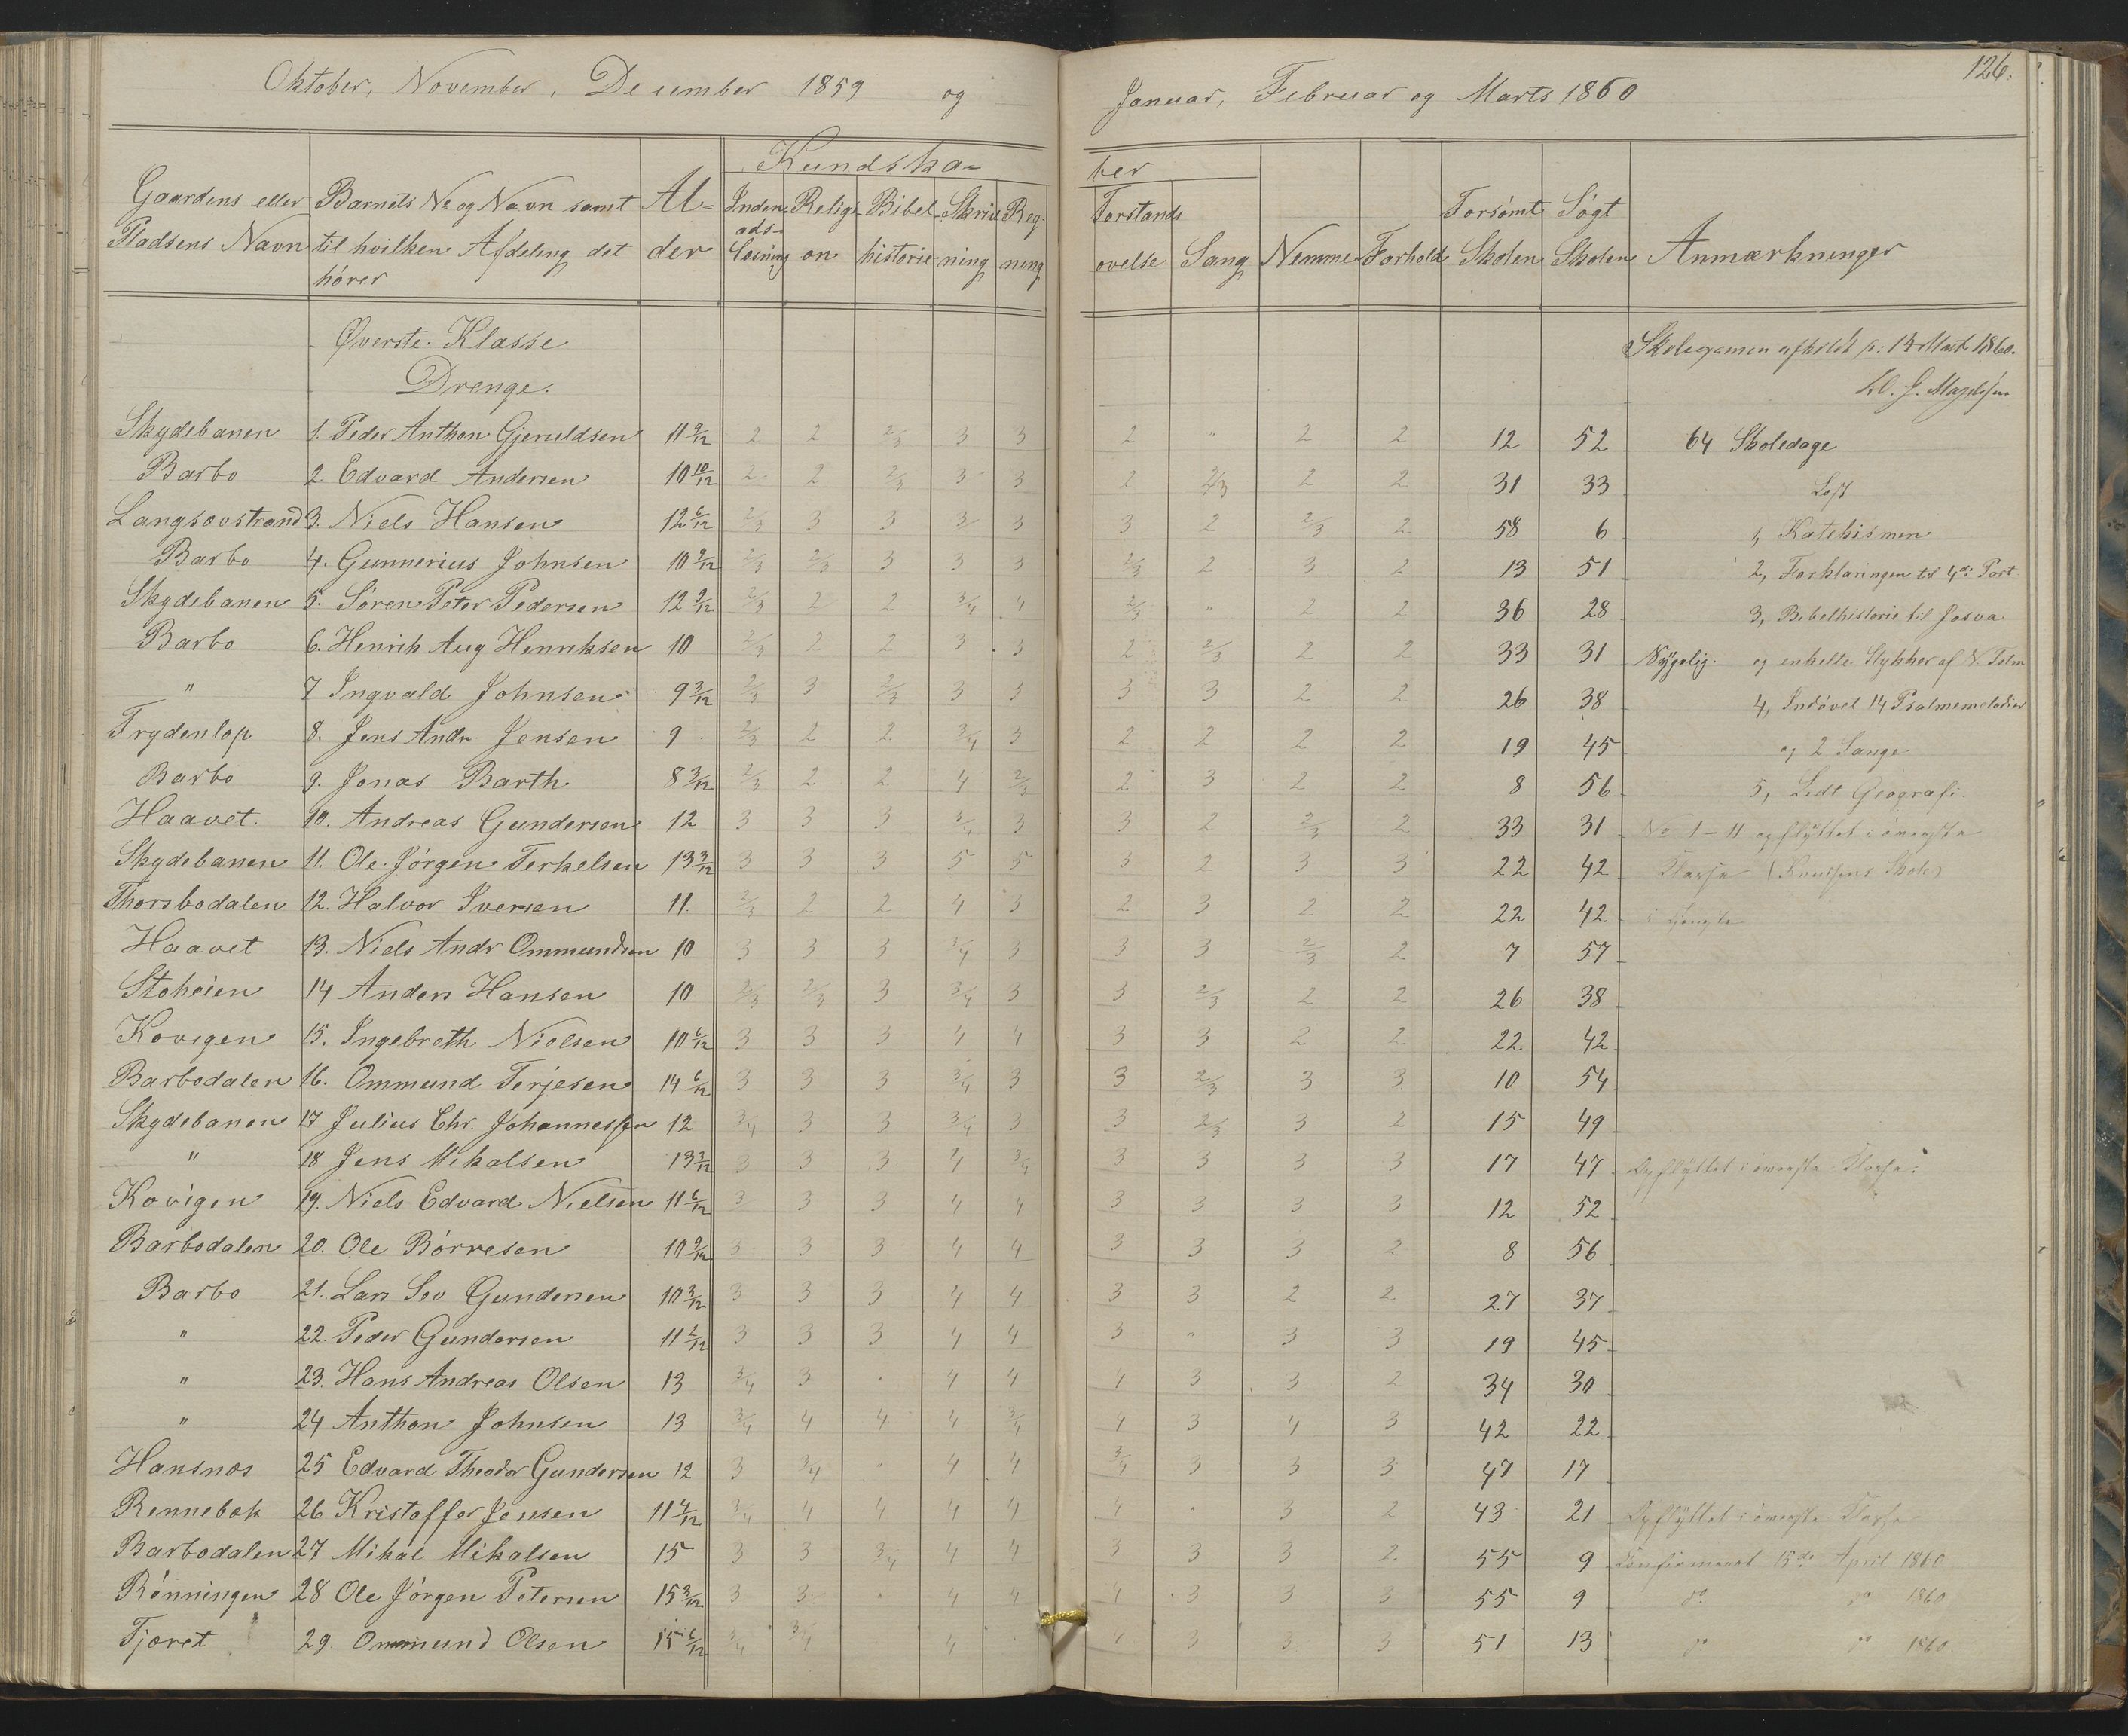 126.
Oktober, November, December 1859 og Januar, Februar og Marts 1860
Kundskaber
Gaardens eller Pladsens Navn | Barnets No og Navn samt til hvilken Afdeling det hører | Alder | Indenadslæsning | Religion | Bibelhistorie | Skrivning | Regning | Forstandsøvelse | Sang | Nemme | Forhold | Forsømt Skolen | Søgt Skolen | Anmærkninger
Øverste Klasse
Skoleexamen afholdt 1860.
Drenge.
Skydebanen 1. Peder Anthon Gjeruldsen 11 9/12 2 2 2/3 3 3 2 " 2 2 12 52 64 Skoledage
Barbo 2 Edvard Andersen 10 10/12 2 2 2/3 3 3 2 2/3 2 2 31 33 Læst
Langsøvstrand 3. Niels Hansen 12 6/12 2/3 3 3 3 3 3 2 2/3 2 58 6 1, Katekismen
Barbo 4. Gunnerius Johnsen 10 9/12 2/3 2/3 3 3 3 2/3 2 3 2 13 51 2, Forklaringen til 4de Part
Skydebanen 5. Søren Peter Pedersen 12 9/12 2/3 2 2 3/4 4 2/3 " 2 2 36 28 3, Bibelhistorie til Josva
Barbo 6. Henrik Aug Henriksen 10 2/3 2 2 3 3 2 2/3 2 2 33 31 Sygelig. og enkelte Stykker af N. Tstm
" 7 Ingvald Johnsen 9 3/12 2/3 3 2/3 3 3 3 3 2 2 26 38 4, Indøvet 14 Psalmemelodier
Frydenlop 8. Jens Andr Jensen 9 2/3 2 2 3/4 3 2 2 2 2 19 45 og 2 Sange
Barbo 9. Jonas Barth 8 3/12 2/3 2 2 4 2/3 2 3 2 2 8 56 5, Lidt Geografi.
Haavet. 10. Andreas Gundersen 12 3 3 3 3/4 3 3 2 2/3 2 33 31 No 1-11 opflyttet i øverste
Skydebanen 11. Ole Jørgen Terkelsen 13 3/12 3 3 3 5 5 3 2 3 3 22 42 Klasse (Knudsens Skole)
Thorsbodalen 12. Halvor Iversen 11. 2/3 2 2 4 3 2 3 2 2 22 42
Haavet 13. Niels Andr Ommundsen 10 3 3 3 3/4 3 3 3 2/3 2 7 57
Stoheien 14 Anders Hansen 10 2/3 2/3 3 3/4 3 3 2/3 2 2 26 38
Kovigen 15. Ingebreth Nielsen 10 6/12 3 3 3 4 4 3 3 2 2 22 42
Barbodalen 16. Ommund Terjesen 14 6/12 3 3 3 3/4 3 3 2/3 3 3 10 54
Skydebanen 17 Julius Chr. Johannessen 12 3/4 3 3 3/4 3 3 2/3 3 2 15 49
" 18 Jens Mikalsen 13 3/12 3 3 3 4 3/4 3 3 3 3 17 47 Opflyttet i øverste Klasse
Kovigen 19. Niels Edvard Nielsen 11 6/12 3 3 3 4 4 3 3 3 3 12 52
Barbodalen 20. Ole Børresen 10 9/12 3 3 3 4 4 3 3 3 2 8 56
Barbo 21. Lars Sev Gundersen 10 3/12 3 3 3 4 4 3 3 2 2 27 37
" 22. Peder Gundersen 11 2/12 3 3 3 4 4 3 " 3 3 19 45
" 23. Hans Andreas Olsen 13 3/4 3 . 4 4 4 3 3 2 34 30
" 24 Anthon Johnsen 13 3/4 4 4 4 3/4 4 3 4 3 42 22
Hansnæs 25 Edvard Theodor Gundersen 12 3 3/4 . 4 4 3/4 3 3 3 47 17
Rennebæk 26 Kristoffer Jensen 11 4/12 3/4 4 4 4 4 4 . 3 2 43 21 Opflyttet i øverste Klasse
Barbodalen 27 Mikal Mikalsen 15 3 3 3/4 4 4 3 3 3 2 55 9 Konfirmeret 15de April 1860
Rønningen 28 Ole Jørgen Petersen 15 3/12 3 3 . 4 4 4 3 3 3 55 9 do do 1860
Tjæret 29. Ommund Olsen 15 6/12 3/4 3/4 4 4 3 3 3 51 13 do do 1860.